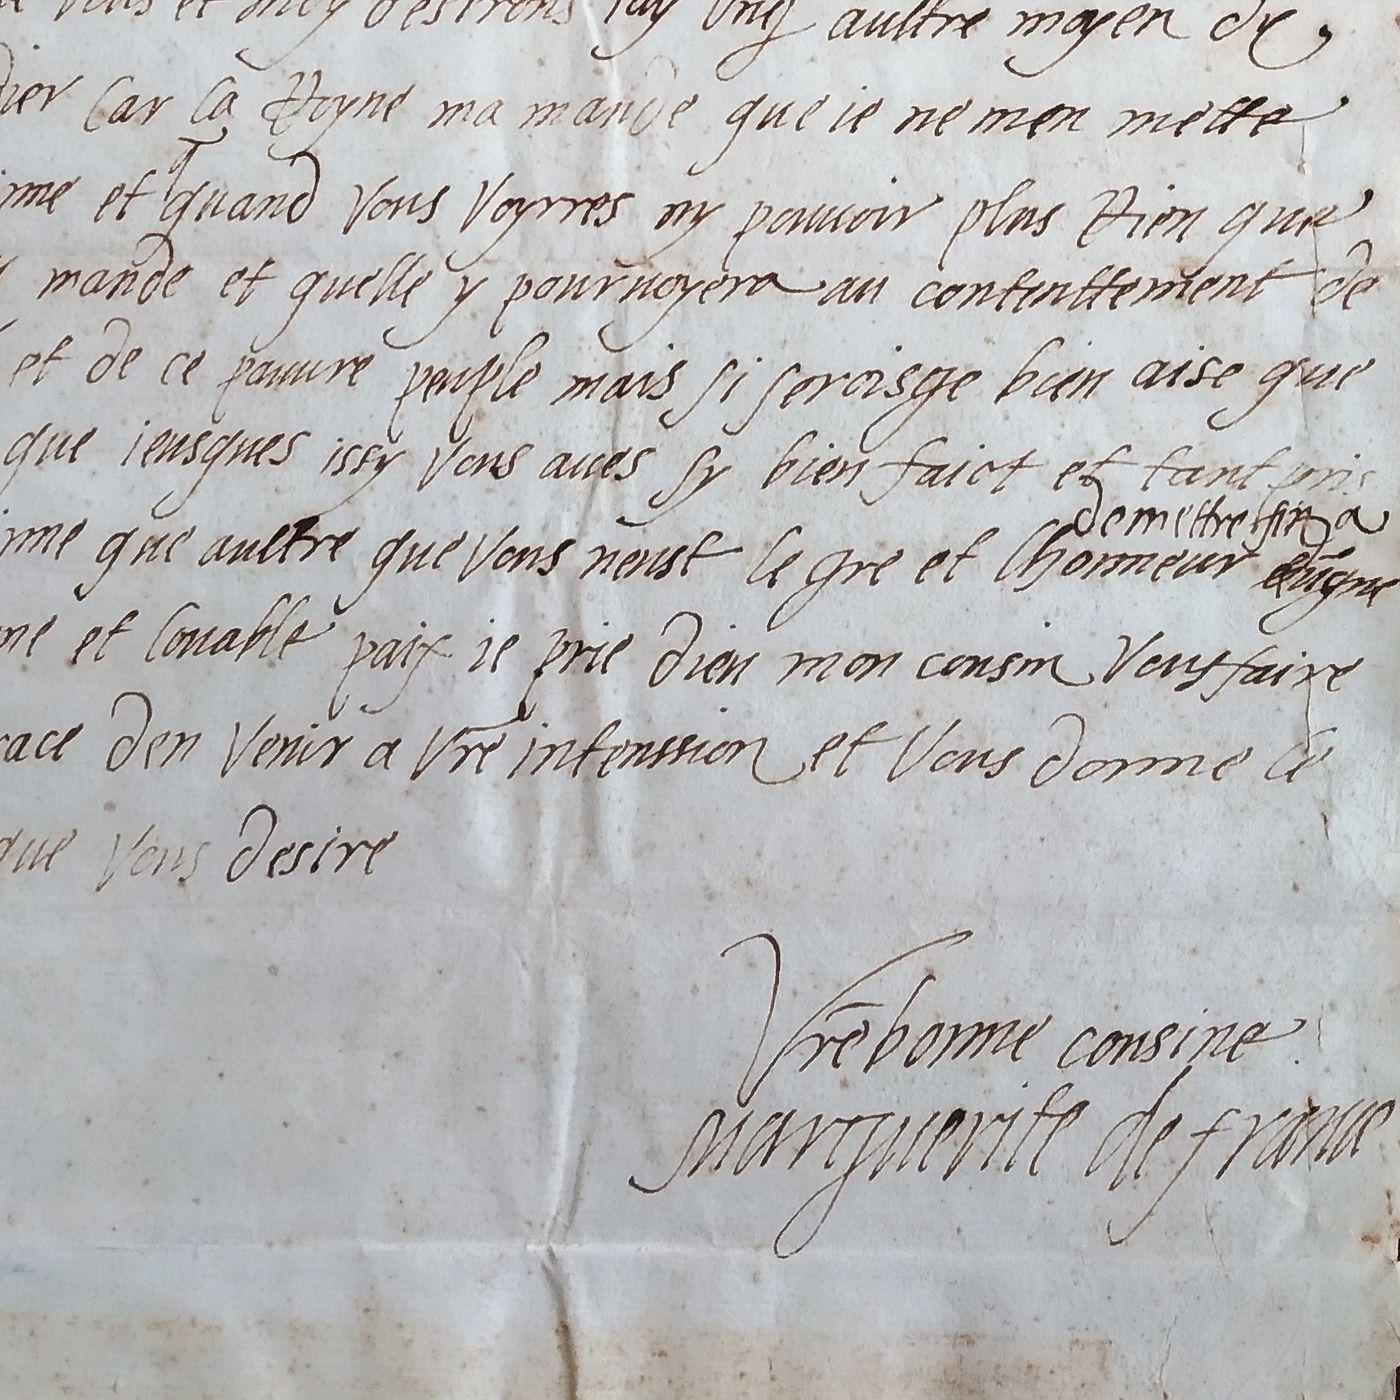 et moy desirons iay ung aultre moyen de
dier car la Royne ma mande que ie ne men mette
me et quand vous voyrres ny pouuoir plus Rien que
mande et quelle y pouruoyera au contenttement de
et de ce pauure peuple mais si seroisge bien aise que
que ieusques issy vous aues sy bien faict et tant pris
me que aultre que vous neust le gre et lhonneur
de mettre fin a
ne et louable paix ie prie dieu mon cousin vous faire
race den venir a vre intenssion et vous donne ce
que vous desire
Vre bonne cousine
Marguerite de france